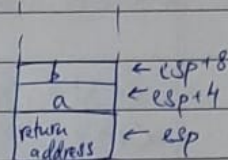 b ← esp+8
a ← esp+4
return
address ← esp